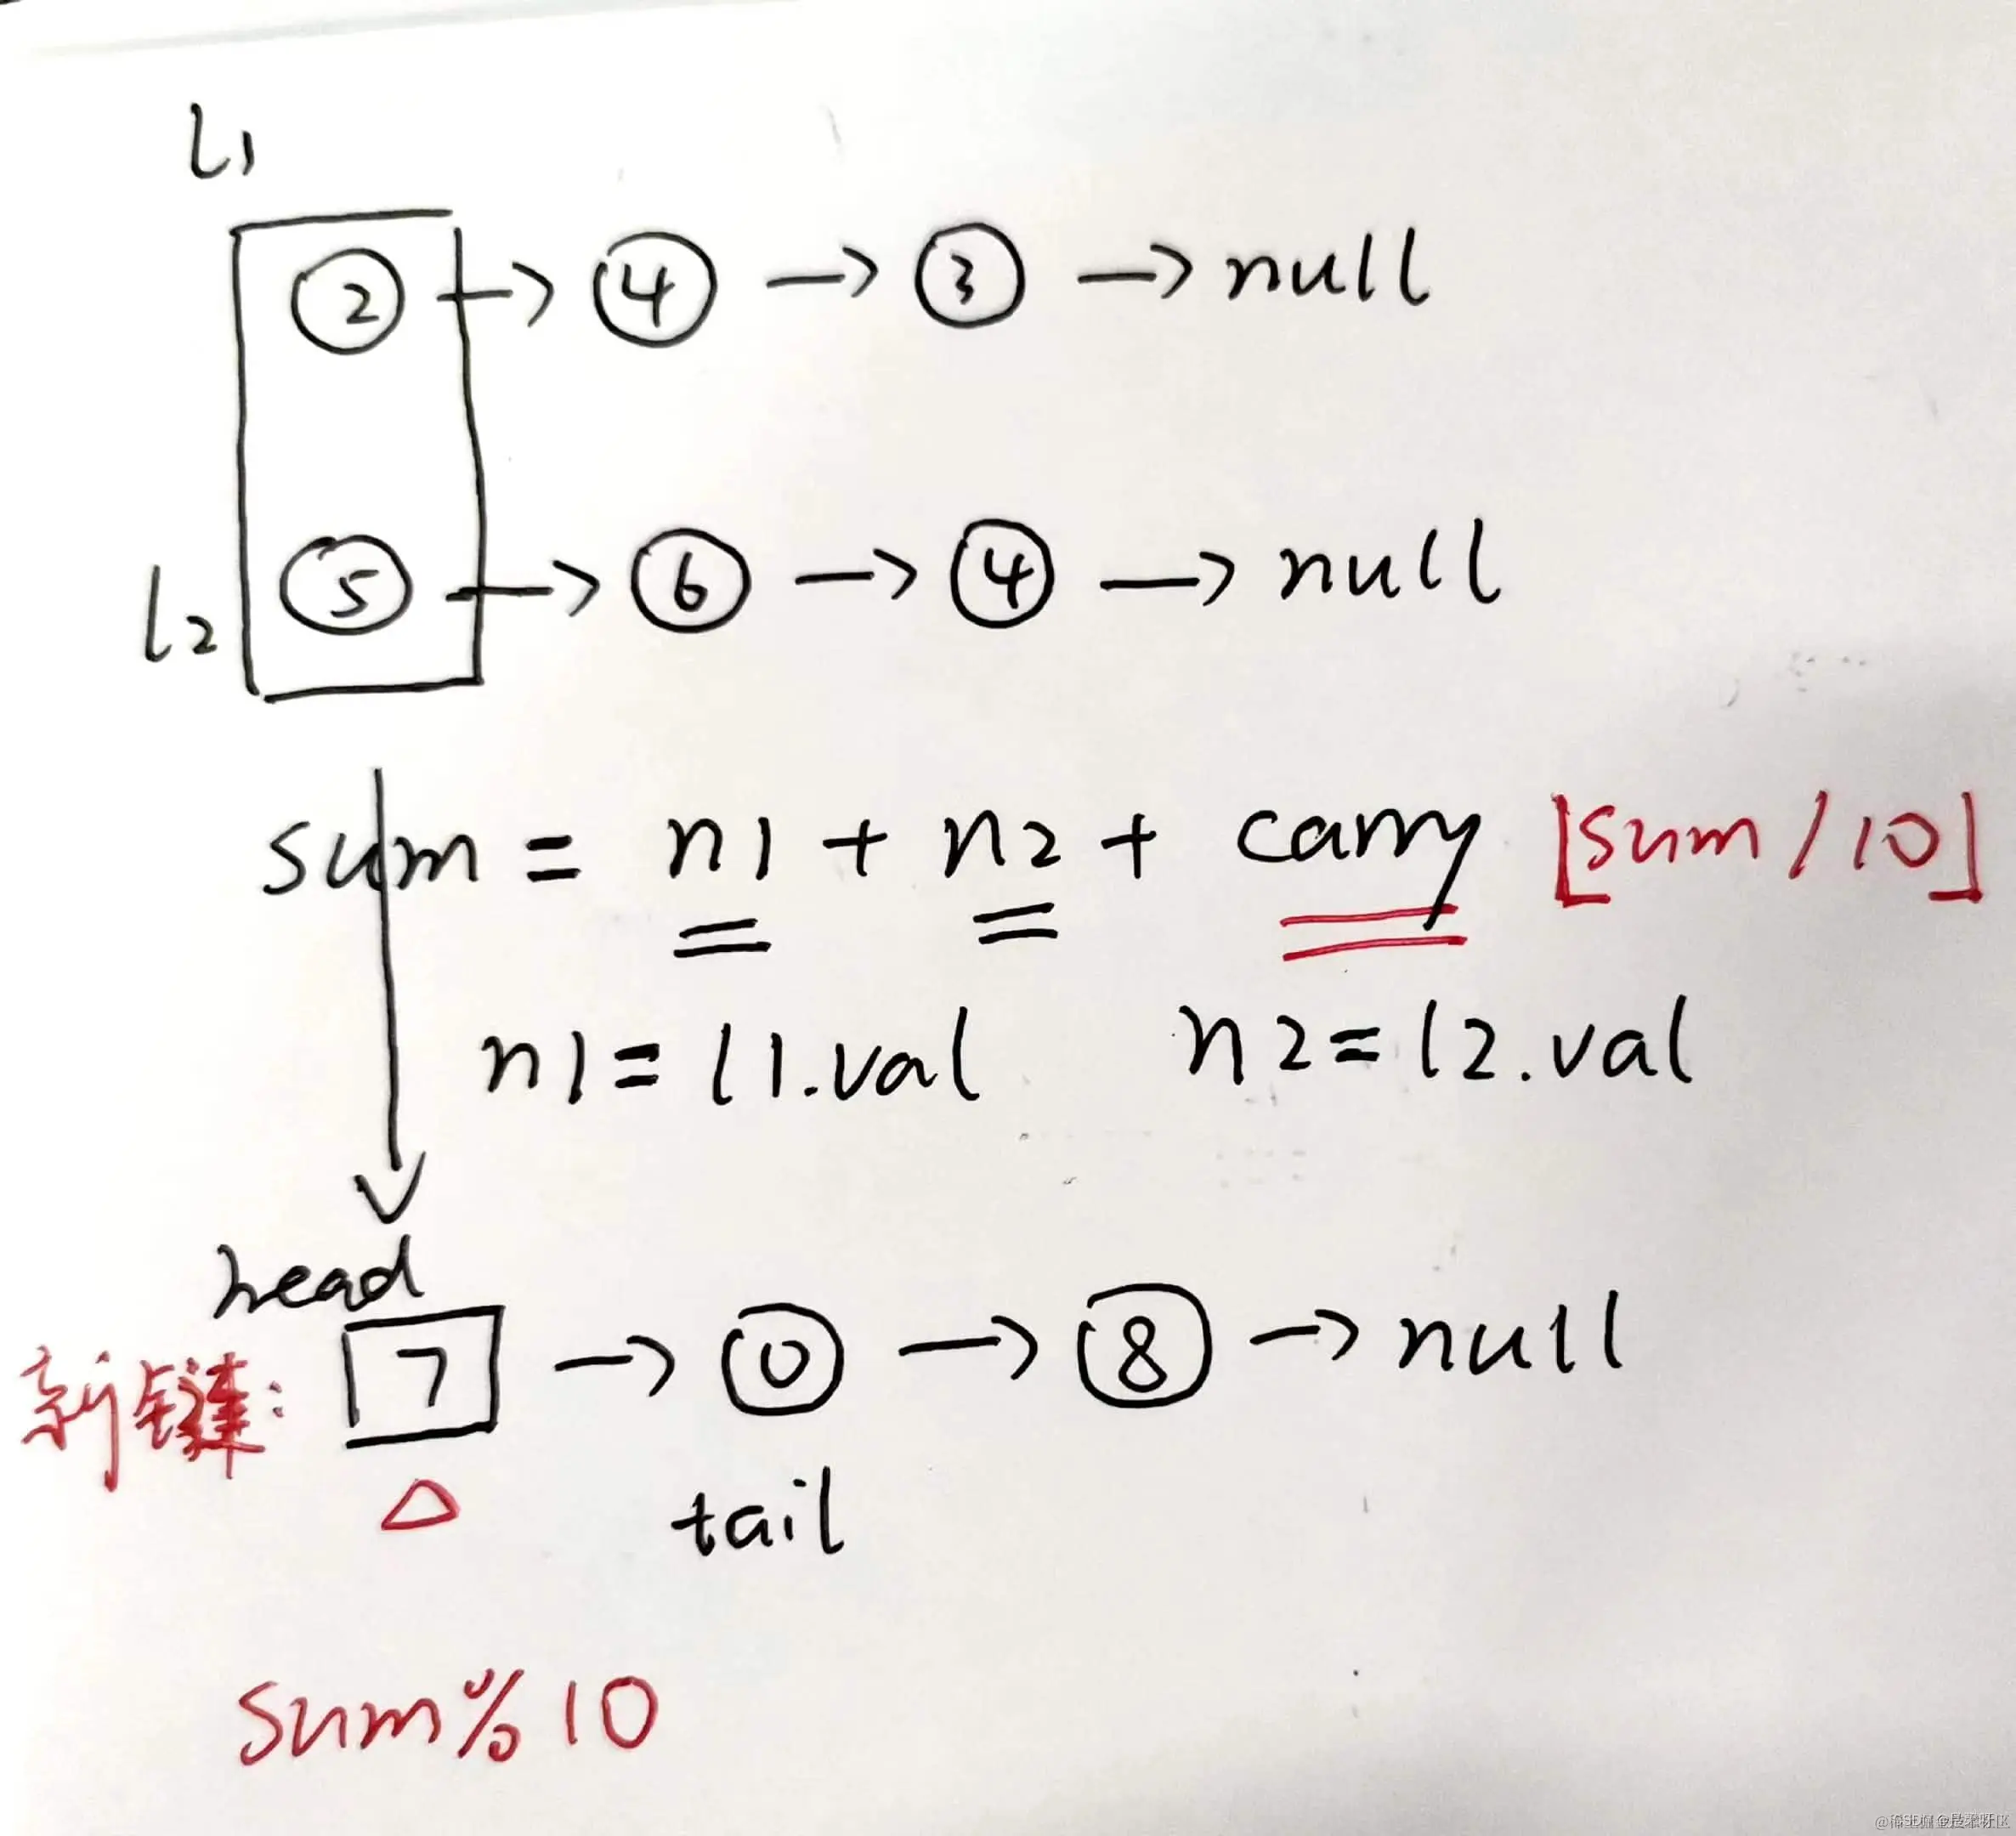 l1
② → ④ → ③ → null
l2
⑤ → ⑥ → ④ → null
sum = n1 + n2 + carry [sum/10]
n1 = l1.val n2 = l2.val
head
新链: 7 → ⓪ → ⑧ → null
tail
sum%10